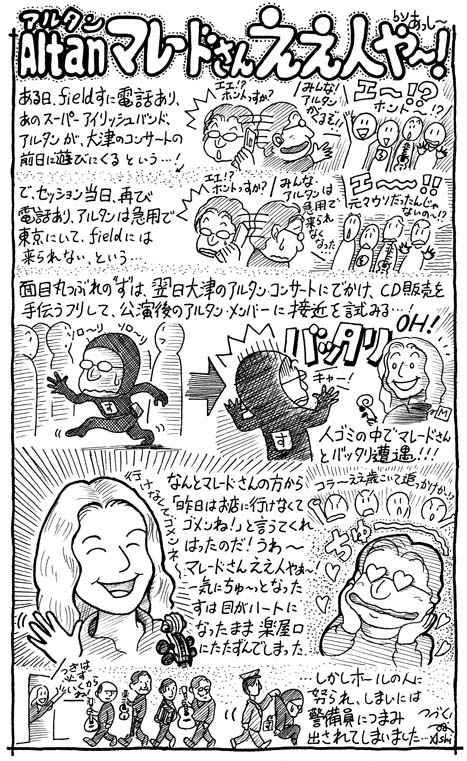 アルタン
Altan マレードさんええ人や〜!
by あっし〜
ある日、fieldすに電話あり、
あのスーパーアイリッシュバンド、
アルタンが、大津のコンサートの
前日に遊びにくるという…!
エエ!?
ホントっすか?
みんな!
アルタン
がくるぞ!
エ〜!?
ホント〜!?
で、セッション当日、再び
電話あり、アルタンは急用で
東京にいて、fieldには
来られない、という…
エエ!?
ホントっすか?
みんな、
アルタンは
急用で
来られ
なくなった
エ〜!!
元々ウソだったんじゃ
ないの〜!?
面目丸つぶれの"すは、翌日大津のアルタンコンサートにでかけ、CD販売を
手伝うフリして、公演後のアルタン・メンバーに接近を試みる…!
ソロ〜リ
ソロ〜リ
す
バッタリ
OH!
キャー!
す
M
人ゴミの中でマレードさん
とバッタリ遭遇!!!
行けなくてゴメンネ〜
なんとマレードさんの方から
「昨日はお店に行けなくて
ゴメンね!」と言うてくれ
はったのだ!うわ〜
マレードさんええ人やぁ〜!
一気にちゅ〜となった
すは目がハートに
なったまま楽屋口
にたたずんでしまった
コラ〜ええ歳こいて追っかけか!?
ちゅ〜
つぎは
必ず
いくから
ね〜
…しかしホールの人に
怒られ、しまいには
警備員につまみ
出されてしまいました…
つづく
Ashi